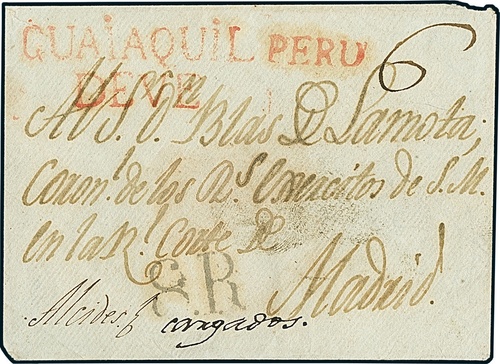 GUAIAQUIL PERU
DEVE
6
Al S.r D.n Blas D Lamota,
Coron.l de los R.s Exercitos de S. M.
en la R.l Corte de
Madrid.
S.R
cargados.